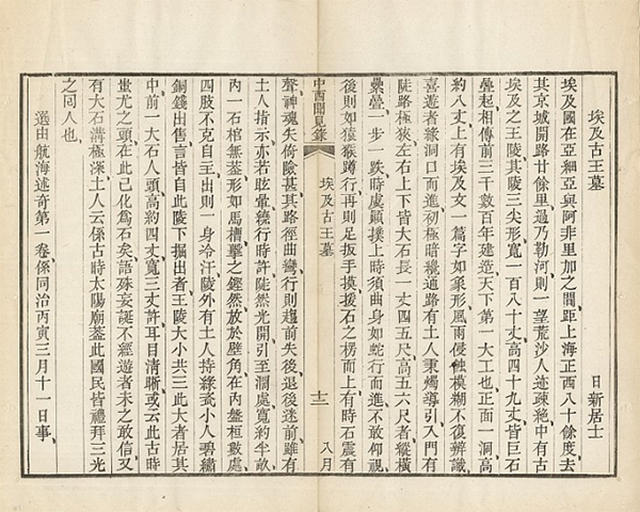 埃及古王墓
日新居士
埃及國在亞細亞與阿非里加之閒距上海正西八十餘度去
其京城開路廿餘里過乃勒河則一望荒沙人迹疎絶中有古
埃及之王陵其陵三尖形寬一百八十丈高四十九丈皆巨石
壘起相傳前三千數百年建造天下第一大工也正面一洞高
約八丈上有埃及文一篇字如象形風雨侵蝕模糊不復辨識
喜遊者緣洞口而進初極暗纔通路有土人秉燭導引入門有
陡路極狹左右上下皆大石長一丈四五尺高五六尺者縱橫
纍疊一步一跌時處顚撲上時須曲身如蛇行而進不敢仰視
後則如猿猴蹲行再則足扳手摸援石之楞而上有時石震有
中西聞見錄
埃及古王墓
十三
八月
聲神魂失倚險甚其路徑曲彎行則趨前失後退後迷前雖有
土人指示亦若眩暈繞行時許陡然光開引至洞處寬約半畝
內一石棺無蓋形如馬槽擊之鏗然放於壁角在內盤桓數處
四肢不克自主出則一身冷汗陵外有土人持綠瓷小人碧繡
銅錢出售言皆自此陵下掘出者王陵大小共三此大者居其
中前一大石人頭高約四丈寬三丈許耳目清晰或云此古時
蚩尤之頭在此已化爲石矣語殊妄誕不經遊者未之敢信又
有大石溝極深土人云係古時太陽廟葢此國民皆禮拜三光
之同人也
選由航海述奇第一卷係同治丙寅三月十一日事